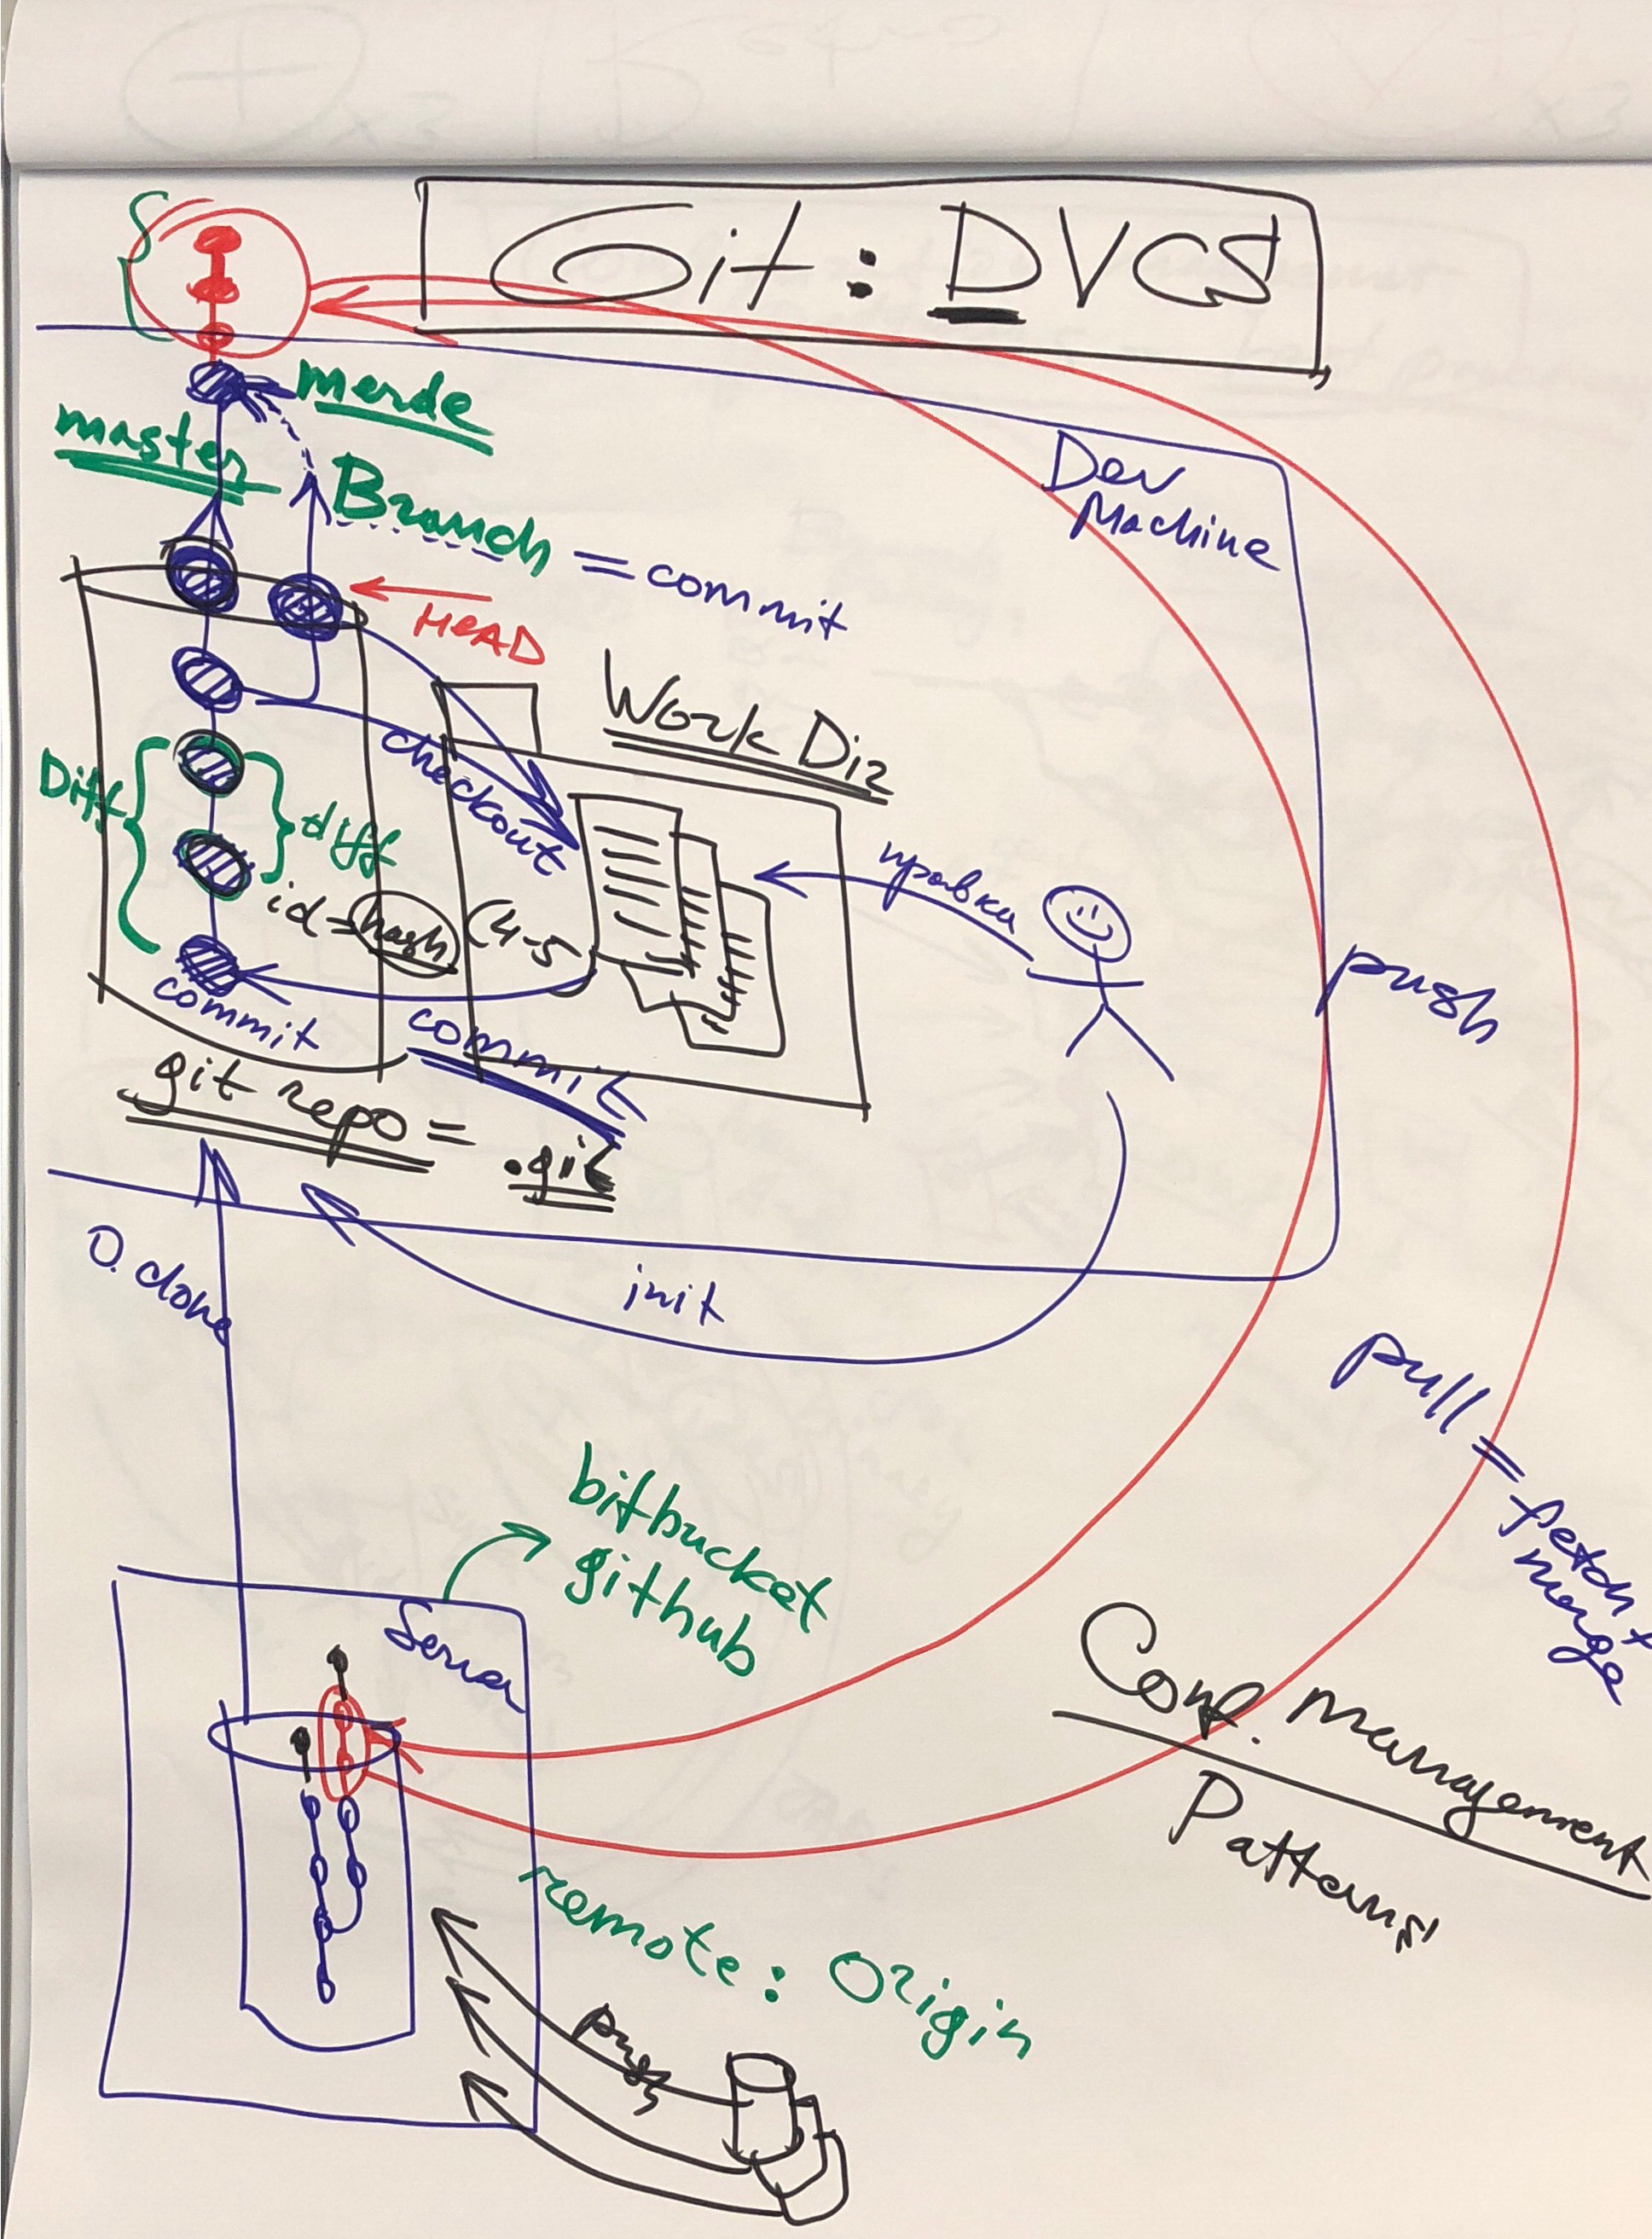 Git: DVCS
merde
master
Branch = commit
HEAD
Dev
Machine
Work Dir
checkout
Diff
diff
правки
id = hash (4-5
commit
commit
push
git repo = .git
0. clone
init
pull =
fetch +
merge
bitbucket
github
Server
Conf. Management
Patterns
remote: Origin
push